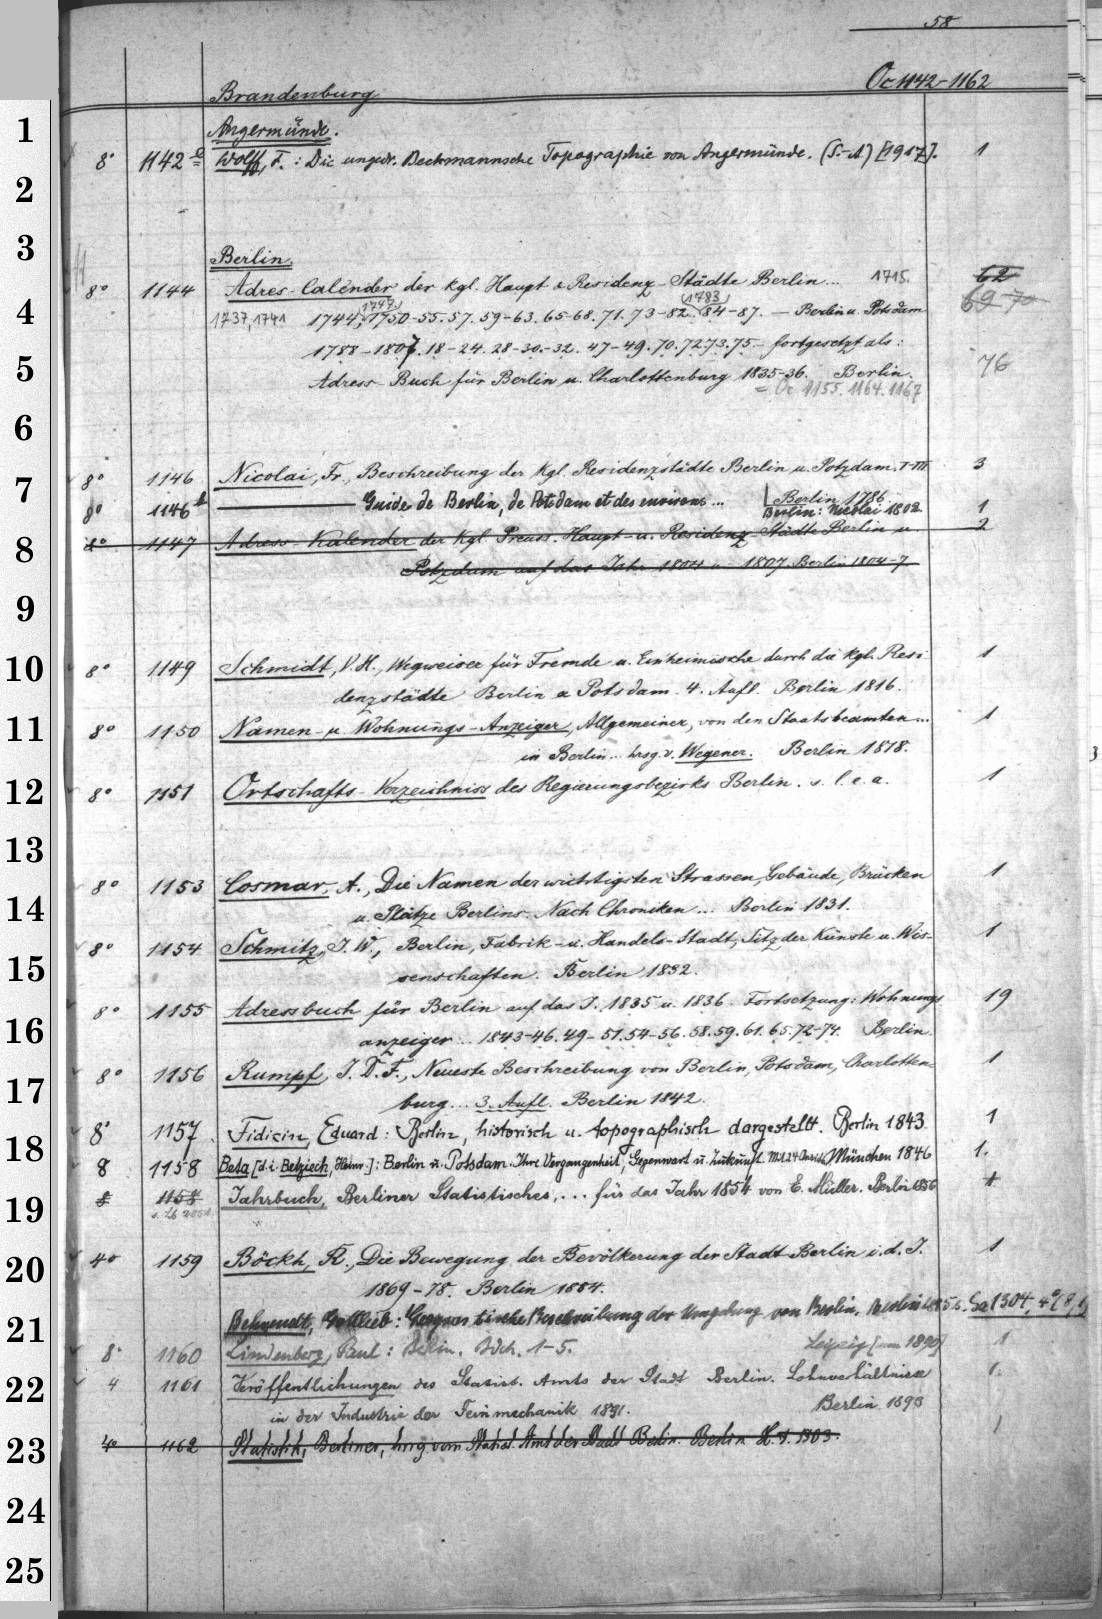 58
Brandenburg Oc 1142-1162
1
Angermünde.
8° 1142 e Wolff, F.: Die ungedr. Beckmannsche Topographie von Angermünde. (S.-A) [1917]. 1
2
3
Berlin.
8° 1144 Adres-Calender der Kgl. Haupt & Residenz-Städte Berlin... 1715. 62
4
1737, 1741 1744, 1747 1750-55. 57. 59-63. 65-68. 71. 73-82. 1783 84-87. — Berlin u. Potsdam 69-70
1788-1807. 18-24. 28-30.-32. 47-49. 70. 72.73.75.- fortgesetzt als:
5
Adress-Buch für Berlin u. Charlottenburg 1835-36. Berlin. 76
= Oc 1155. 1164. 1167
6
8° 1146 Nicolai, Fr., Beschreibung der Kgl. Residenzstädte Berlin u. Potzdam. I-III 3
7
Berlin 1786
8° 1146 b ——— Guide de Berlin, de Potsdam et des environs... Berlin: Nicolai 1802 1
8
8° 1147 Adress-Kalender der Kgl. Preuss. Haupt- u. Residenz-Städte Berlin u. 2
Potzdam auf das Jahr 1804 u. 1807. Berlin 1804-7
9
10
8° 1149 Schmidt, V. H., Wegweiser für Fremde u. Einheimische durch die Kgl. Resi-
1
denzstädte Berlin u Potsdam. 4. Aufl. Berlin 1816.
11
8° 1150 Namen- u Wohnungs-Anzeiger, Allgemeiner, von den Staatsbeamten... 1
in Berlin... hrsg. v. Wegener. Berlin 1818.
12
8° 1151 Ortschafts-Verzeichniss des Regierungsbezirks Berlin. s. l. e. a. 1
13
8° 1153 Cosmar, A., Die Namen der wichtigsten Strassen, Gebäude, Brücken 1
14
u. Plätze Berlins. Nach Chroniken... Berlin 1831.
8° 1154 Schmitz, J. W., Berlin, Fabrik- u. Handels-Stadt, Sitz der Künste u. Wis- 1
15
senschaften. Berlin 1832.
8° 1155 Adressbuch für Berlin auf das J. 1835 u. 1836. Fortsetzung: Wohnungs 19
16
anzeiger... 1843-46. 49-51. 54-56. 58. 59. 61. 65. 72-74. Berlin.
8° 1156 Rumpf, J. D. F., Neueste Beschreibung von Berlin, Potsdam, Charlotten- 1
17
burg... 3. Aufl. Berlin 1842.
8° 1157. Fidicin, Eduard: Berlin, historisch u. topographisch dargestellt. Berlin 1843. 1
18
8 1158 Beta [d. i. Bettziech, Heinr.]: Berlin u. Potsdam. Ihre Vergangenheit, Gegenwart u. Zukunft. Mit 24 Ansichten München 1846 1.
19
8 1158 Jahrbuch, Berliner Statistisches,... für das Jahr 1854 von E. Müller. Berlin 1856 1
20
4° 1159 Böckh, R., Die Bewegung der Bevölkerung der Stadt Berlin i. d. J. 1
1869-78. Berlin 1884.
21
Behrendt, Gottlieb: Geognostische Beschreibung der Umgebung von Berlin. Berlin
8° 1160 Lindenberg, Paul: Berlin. Bdch. 1-5. Leipzig [um 1890] 1
22
4 1161 Veröffentlichungen des Statist. Amts der Stadt Berlin. Lohnverhältnisse 1.
in der Industrie der Feinmechanik 1891. Berlin 1893
23
4° 1162 Statistik, Berliner, hrsg. vom Statist. Amt der Stadt Berlin. Berlin H. 1. 1903. 1
24
25